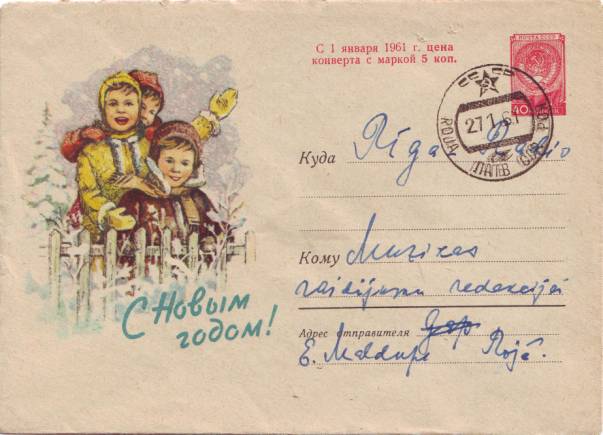 С 1 января 1961 г. цена
конверта с маркой 5 коп.
ПОЧТА СССР
40
27 1 61
ROJA
Куда Rīga, Radio
Кому Muzikas
raidījumu redakcijai
Адрес отправителя
E. Maldupe Rojā.
С Новым
годом!